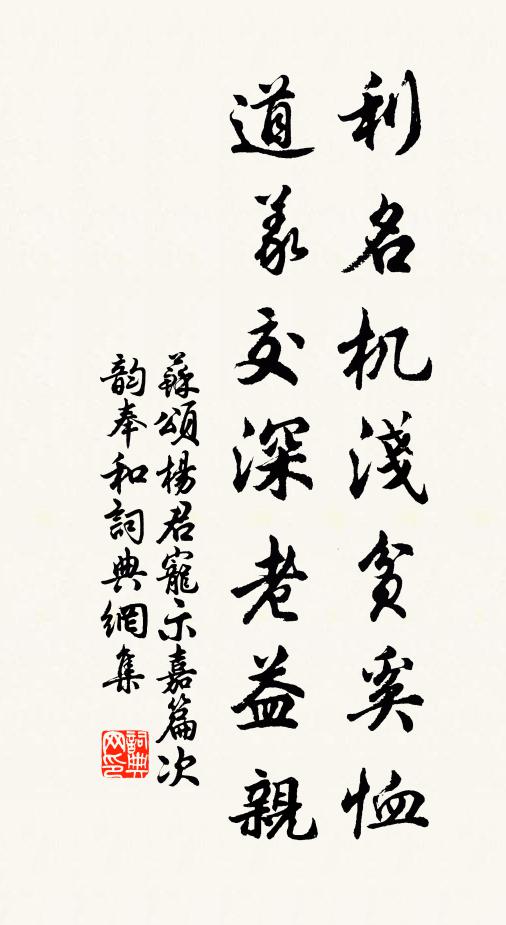 利名机淺貧奚恤
道义交深老益親
蘇頌楊君寵示嘉篇次
韵奉和詞典網集
詞典網印